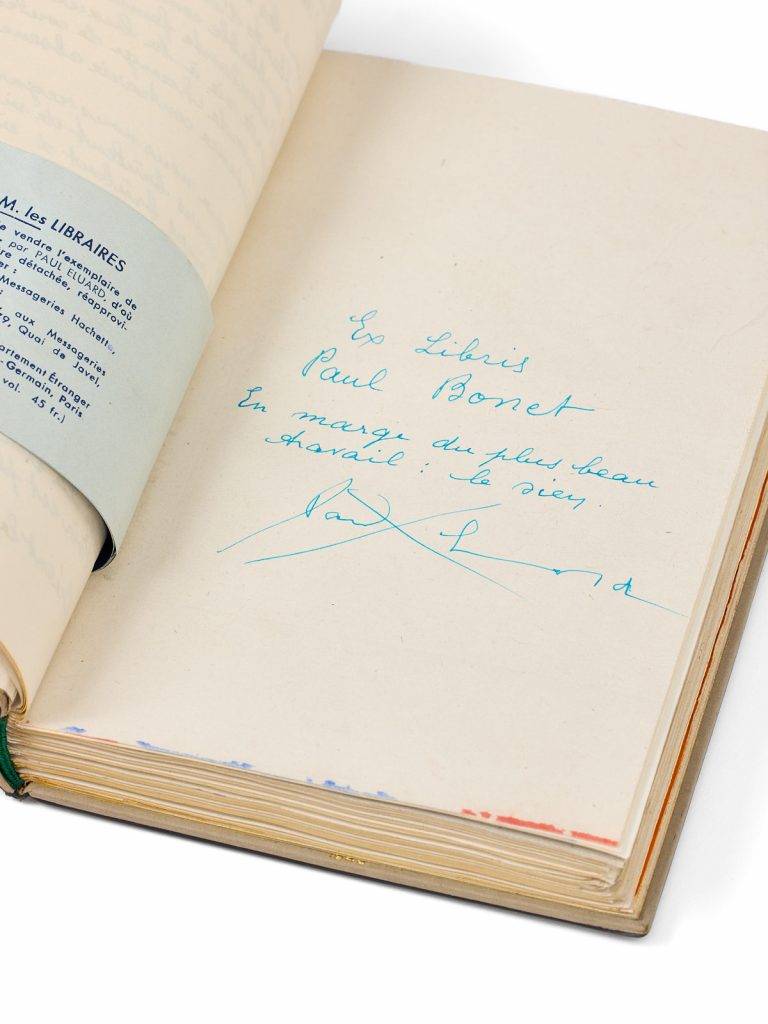 M. les LIBRAIRES
e vendre l'exemplaire de
par PAUL ELUARD, d'où
re détachée, réapprovi-
er :
Messageries Hachette,
aux Messageries
9, Quai de Javel,
partement Étranger
-Germain, Paris
vol. 45 fr.)
Ex Libris
Paul Bonet
En marge du plus beau
travail : le sien.
Paul Eluard